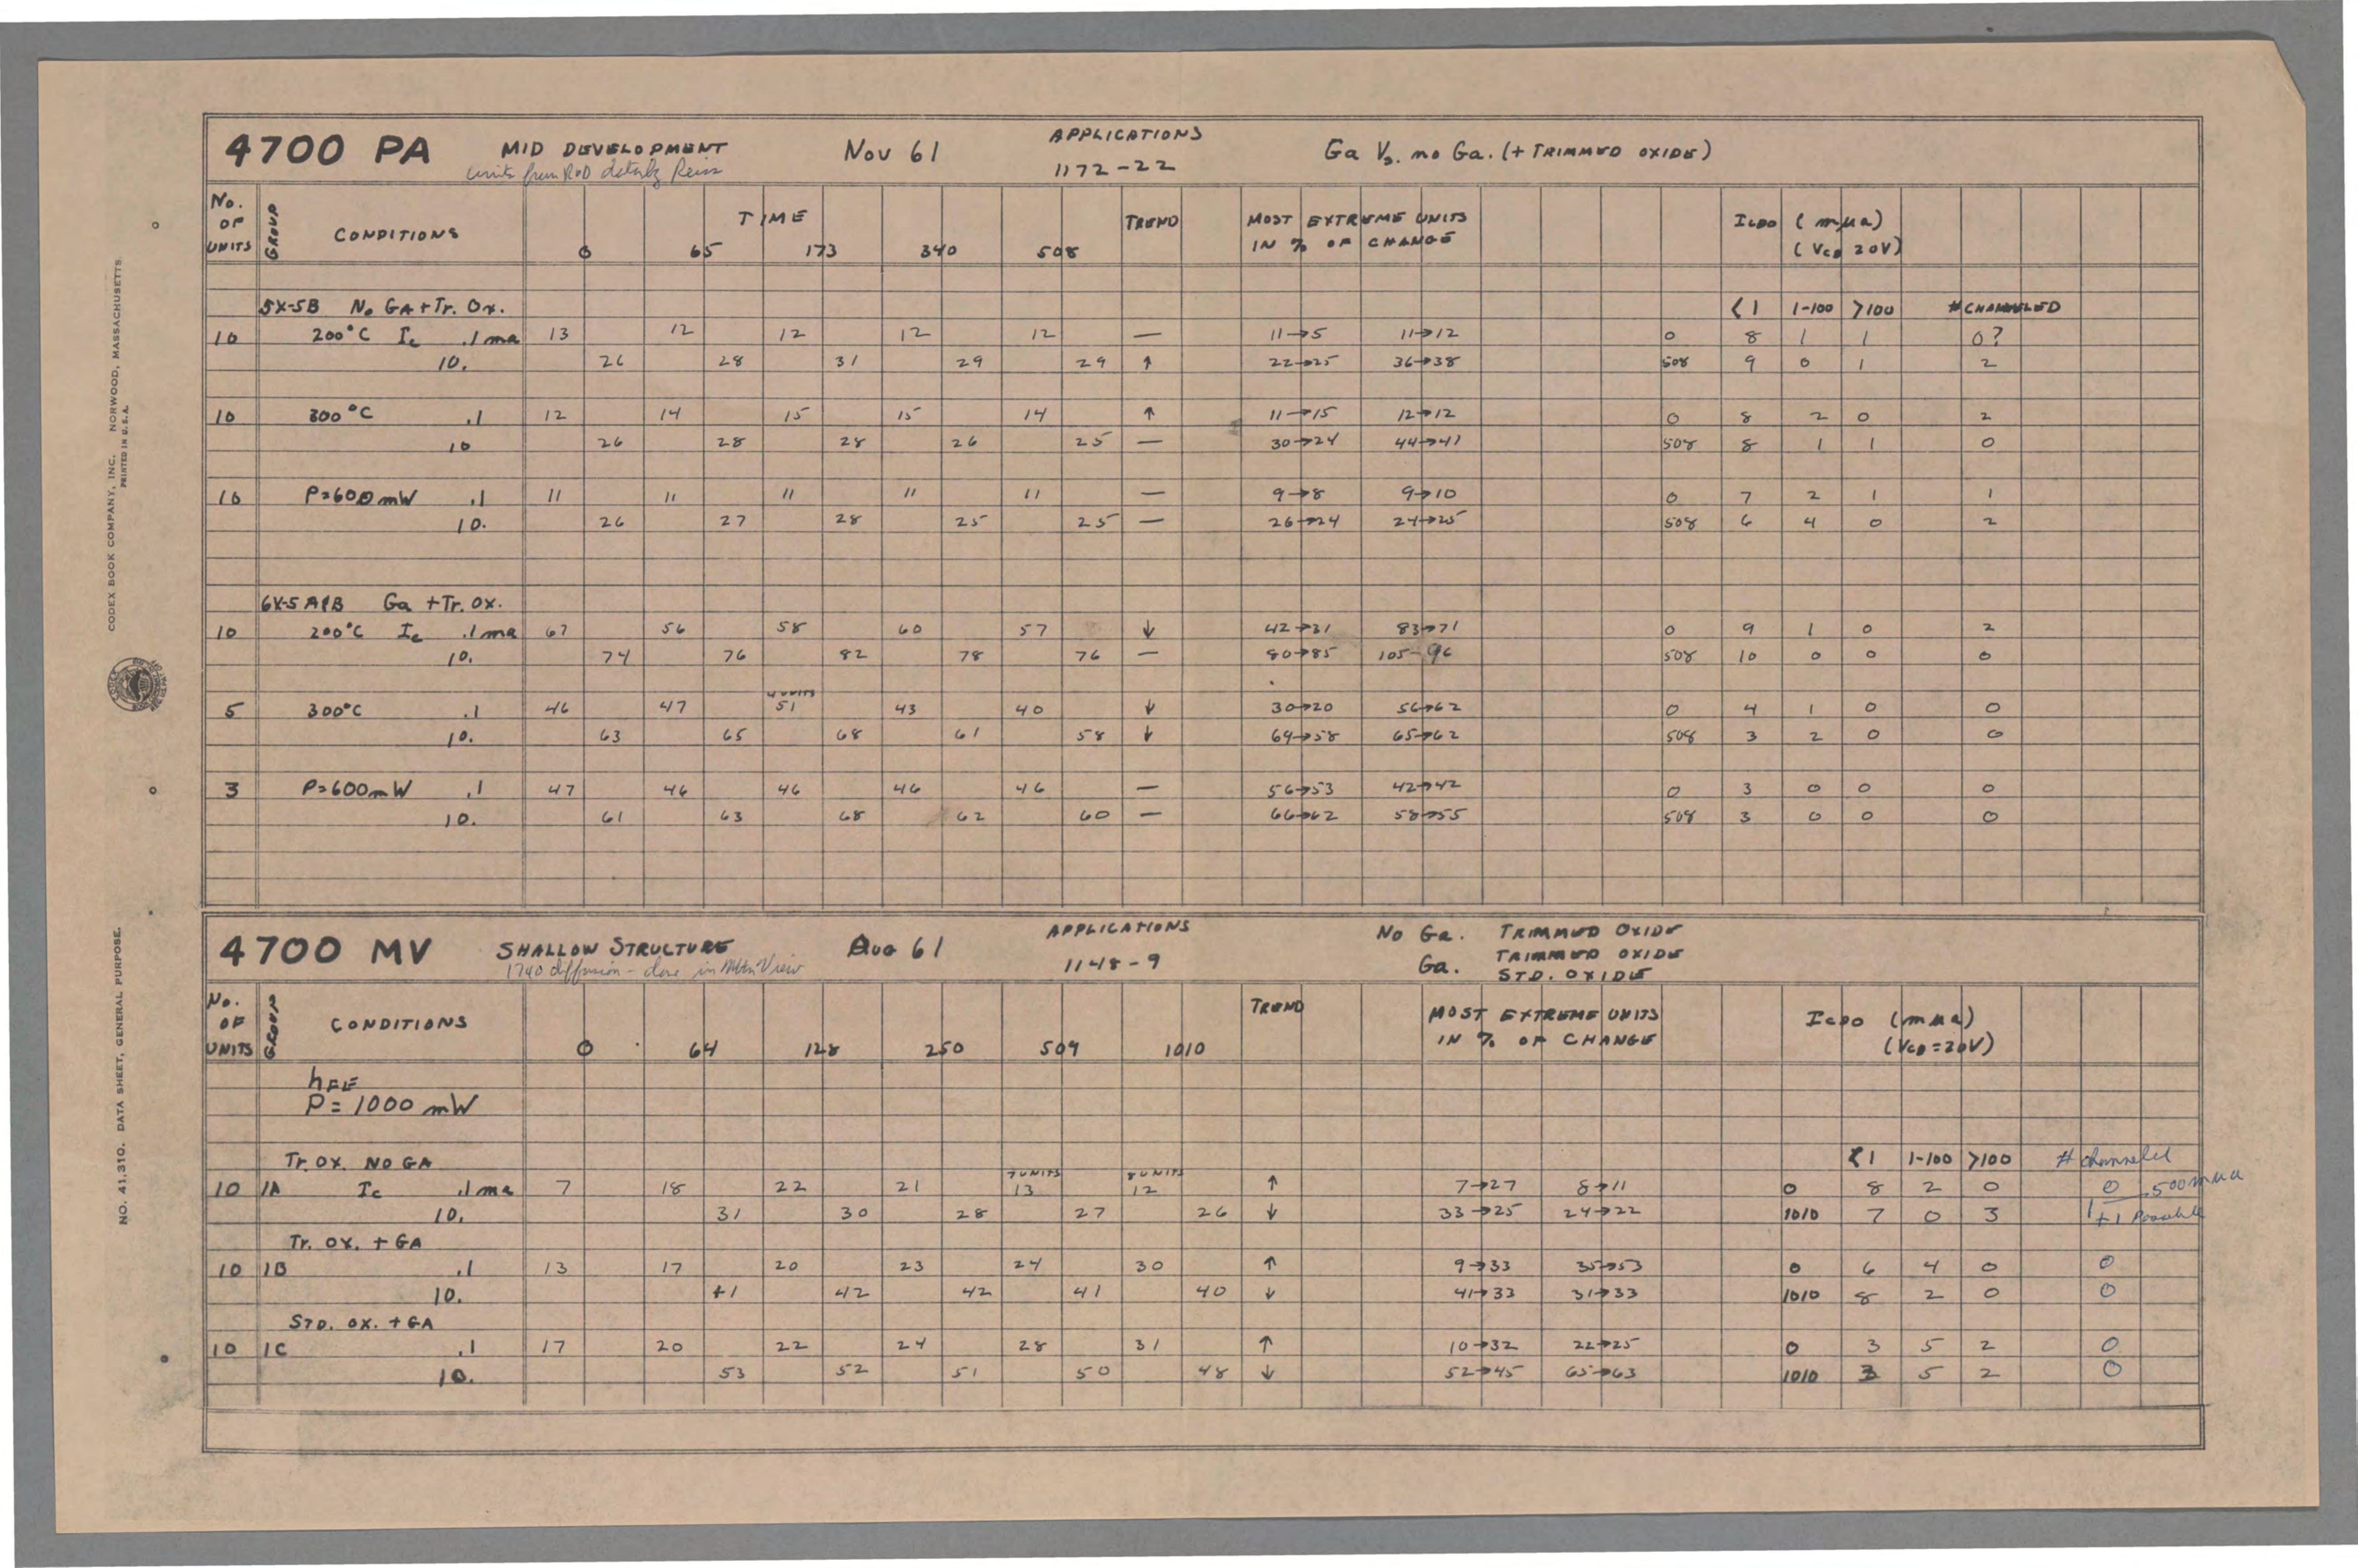 4700 PA MID DEVELOPMENT Nov 61 APPLICATIONS 1172-22 Ga Vs. no Ga. (+ TRIMMED OXIDE)
units from R&D Reiss
No. OF UNITS GROUP CONDITIONS TIME TREND MOST EXTREME UNITS IN % OF CHANGE ICBO (mμa) (VCB 20V)
0 65 173 340 508
5X-5B No GA + Tr. Ox. <1 1-100 >100 # CHANNELED
10 200°C Ic .1 ma 13 12 12 12 12 — 11→5 11→12 0 8 1 1 0?
10. 26 28 31 29 29 ↑ 22→25 36→38 508 9 0 1 2
10 300°C .1 12 14 15 15 14 ↑ 11→15 12→12 0 8 2 0 2
10 26 28 28 26 25 — 30→24 44→41 508 8 1 1 0
10 P=600mW .1 11 11 11 11 11 — 9→8 9→10 0 7 2 1 1
10. 26 27 28 25 25 — 26→24 24→25 508 6 4 0 2
6X-5 A&B Ga + Tr. Ox.
10 200°C Ic .1 ma 67 56 58 60 57 ↓ 42→31 83→71 0 9 1 0 2
10. 74 76 82 78 76 — 80→85 105-96 508 10 0 0 0
4 UNITS
5 300°C .1 46 47 51 43 40 ↓ 30→20 56→62 0 4 1 0 0
10. 63 65 68 61 58 ↓ 69→58 65→62 508 3 2 0 0
3 P=600mW .1 47 46 46 46 46 — 56→53 42→42 0 3 0 0 0
10. 61 63 68 62 60 — 66→62 58→55 508 3 0 0 0
4700 MV SHALLOW STRUCTURE Aug 61 APPLICATIONS 1148-9 No Ga. TRIMMED OXIDE
1740 diffusion - done in Mtn View Ga. TRIMMED OXIDE
STD. OXIDE
No. OF UNITS GROUP CONDITIONS TREND MOST EXTREME UNITS IN % OF CHANGE ICBO (mμa) (VCB=20V)
0 64 128 250 509 1010
hFE
P = 1000 mW
Tr. OX. NO GA <1 1-100 >100 # channeled
7 UNITS 8 UNITS
10 1A Ic .1 ma 7 18 22 21 13 12 ↑ 7→27 8→11 0 8 2 0 0 500 mμa
10. 31 30 28 27 26 ↓ 33→25 24→22 1010 7 0 3 1 +1 Possible
Tr. OX. + GA
10 1B .1 13 17 20 23 24 30 ↑ 9→33 35→53 0 6 4 0 0
10. 41 42 42 41 40 ↓ 41→33 31→33 1010 8 2 0 0
STD. OX. + GA
10 1C .1 17 20 22 24 28 31 ↑ 10→32 22→25 0 3 5 2 0
10. 53 52 51 50 48 ↓ 52→45 65→63 1010 3 5 2 0
CODEX BOOK COMPANY, INC. NORWOOD, MASSACHUSETTS.
PRINTED IN U.S.A.
NO. 41,310. DATA SHEET, GENERAL PURPOSE.